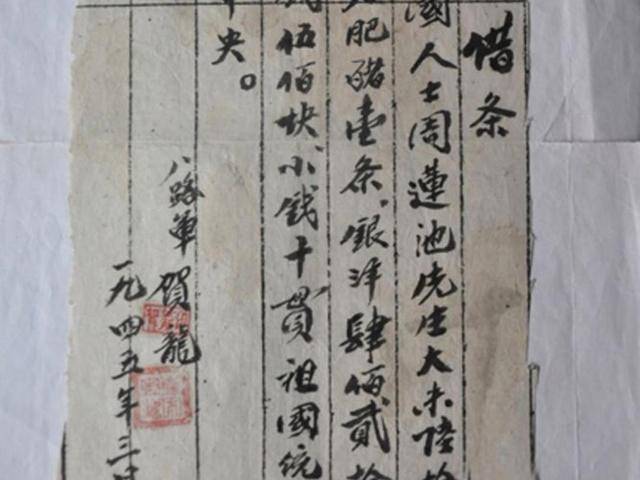 借条
國人士周蓮池先生大米陸
肥豬壹条.銀洋肆佰貳拾
伍佰块.小钱十貫祖國统
央。
八路軍賀龍
一九四五年三月